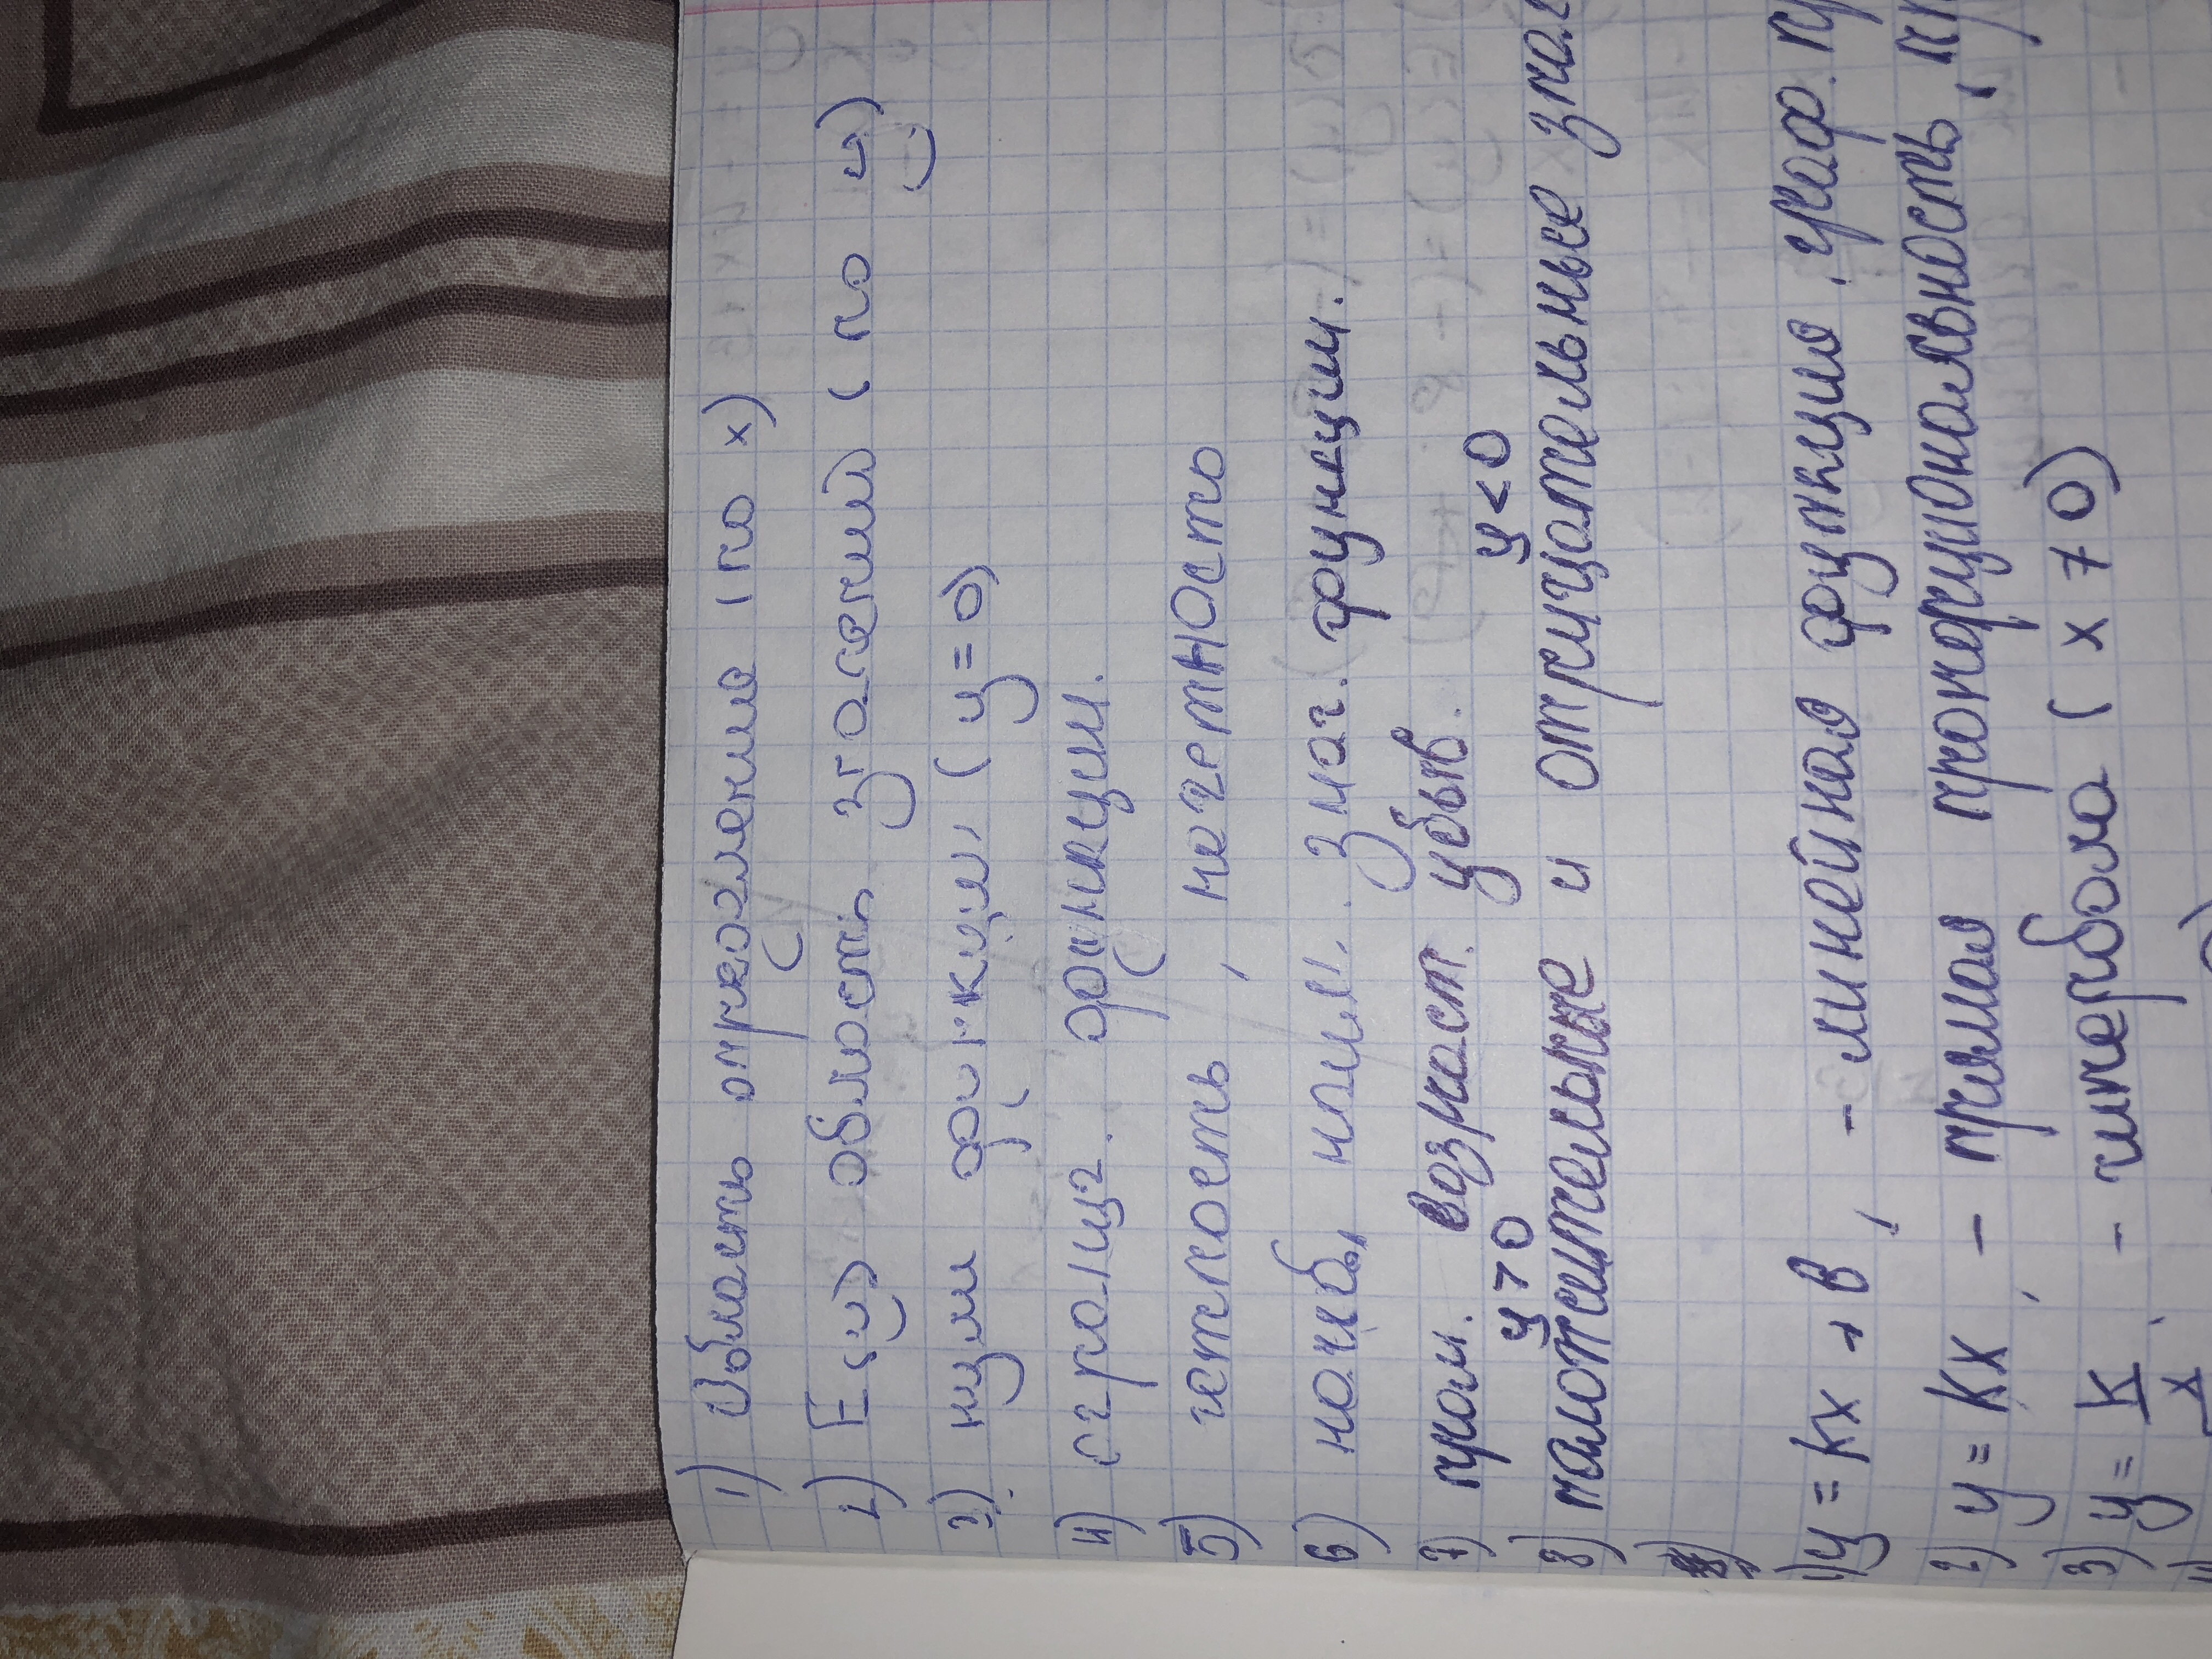 1) Область определение (по х)
2) E(y) область значений (по у)
3) нули функции, (у=0)
4) огранич. функции.
5) четность, нечетность
6) наиб, наим. знач. функции.
7) пром. возраст. убыв.
y>0 y<0
8) положительные и отрицательные знач
1) y = kx + b, - линейная функция, граф. пр
2) y = kx, - прямая пропорциональность, "пр
3) y = k/x, - гипербола (х 7 0)
4)